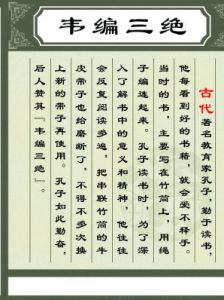 韦编三绝
古代著名教育家孔子，勤于读书，
他每看到好的书籍，就会爱不释手。
当时的书，主要写在竹简上，用绳
子编连起来。孔子读书时，为了深
入了解书中的意义和精神，他往往
会反复阅读多遍，把串联竹简的牛
皮带子也给磨断了，不得不多次换
上新的带子再使用。孔子如此勤奋，
后人赞其『韦编三绝』。